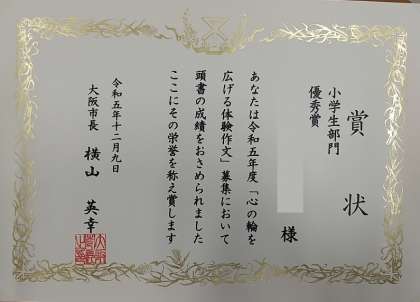 賞状
小学生部門
優秀賞
様
あなたは令和五年度「心の輪を
広げる体験作文」募集において
頭書の成績をおさめられました
ここにその栄誉を称え賞します
令和五年十二月九日
大阪市長 横山英幸